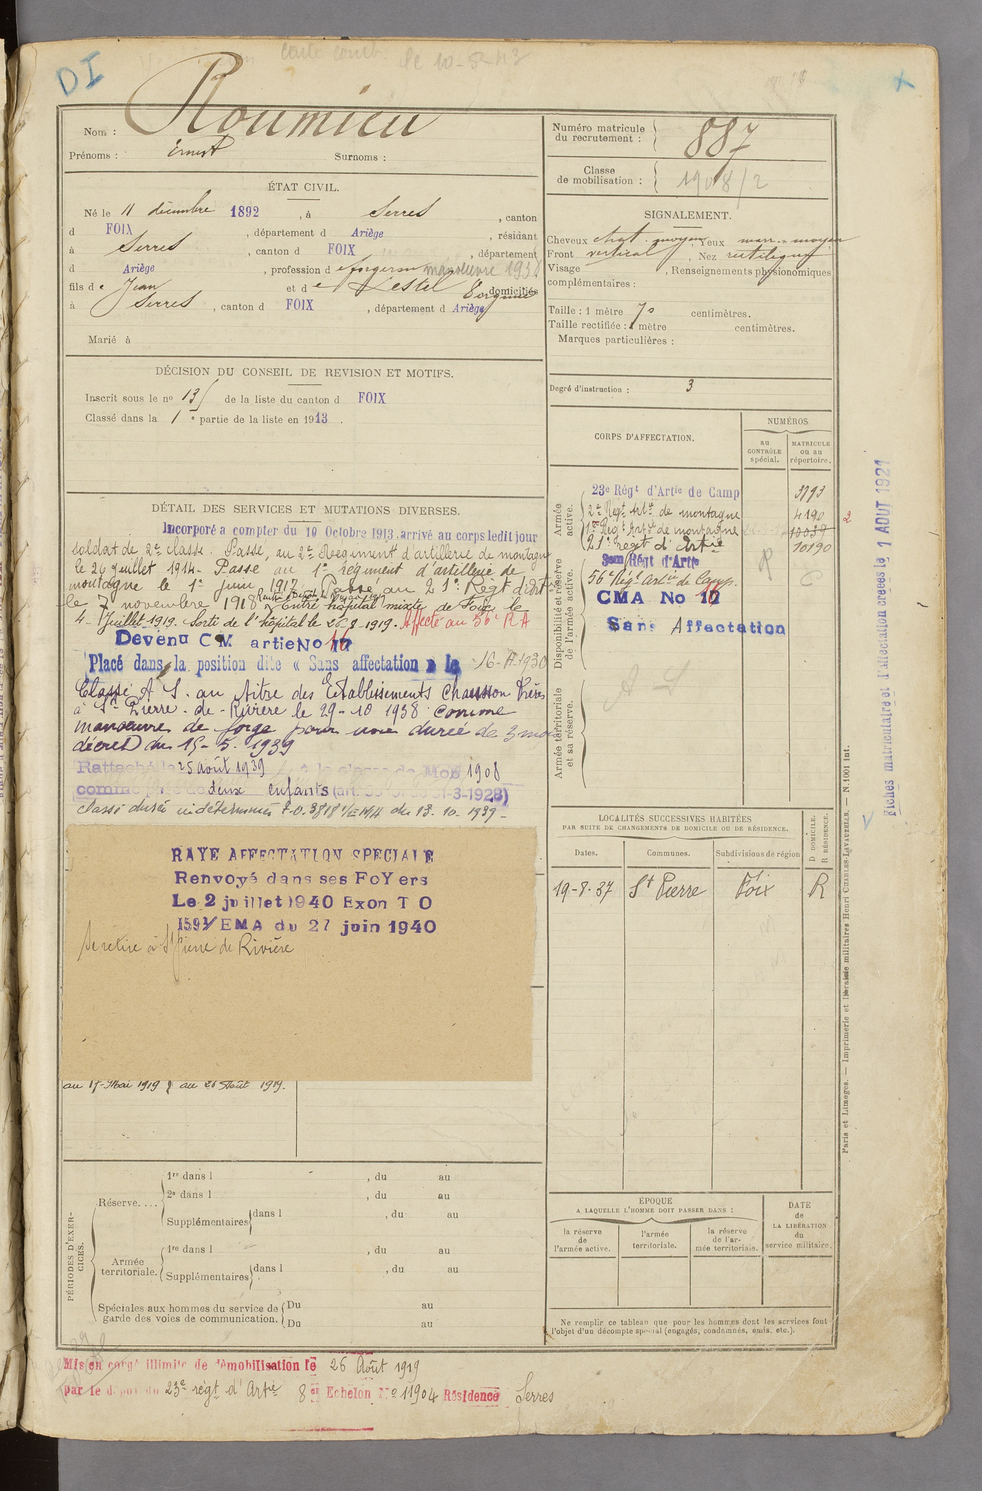 DI
carte comb. le 10-5-43
Nom : Roumieu
Prénoms : Ernest Surnoms :
ÉTAT CIVIL.
Né le 11 décembre 1892, à Serres, canton
d FOIX, département d Ariège, résidant
à Serres, canton d FOIX, département
d Ariège, profession de forgeron manœuvre 1930
fils de Jean et de Estel domiciliés
à Serres, canton d FOIX, département d Ariège
Marié à
DÉCISION DU CONSEIL DE REVISION ET MOTIFS.
Inscrit sous le no 13 de la liste du canton d FOIX
Classé dans la 1e partie de la liste en 1913.
DÉTAIL DES SERVICES ET MUTATIONS DIVERSES.
Incorporé a compter du 10 Octobre 1913. arrivé au corps ledit jour
soldat de 2e classe. Passé au 2e Regiment d'artillerie de montagne
le 26 juillet 1914. Passé au 1er régiment d'artillerie de
montagne le 1er Juin 1917. Passé au 21e Régt d'art
le 7 novembre 1918. Entré hôpital mixte de Foix le
4 Juillet 1919. Sorti de l'hôpital le 26-8-1919. Affecté au 56e R A
Devenu C M artie No 17 16
Placé dans la position dite « Sans affectation » le 16-A-1930
Classé A S. au titre des Etablissements Chausson Frères
à St Pierre-de-Rivière le 29-10 1938 comme
manœuvre de forge pour une durée de 3 mois
décret du 15-5-1939
Rattaché le 25 août 1939 à la classe de Mob 1908
comme père de deux enfants (art. 31-3-1928)
classé durée indéterminée F.O. 3818 1/EMA du 13-10-1939-
RAYE AFFECTATION SPECIALE
Renvoyé dans ses FoYers
Le 2 juillet 1940 Exon T O
1593/EMA du 27 juin 1940
Se retire à St Pierre de Rivière
au 17-Mai 1919 au 26 Août 1919.
PÉRIODES D'EXERCICES.
Réserve....
1re dans l , du au
2e dans l , du au
Supplémentaires dans l , du au
Armée territoriale.
1re dans l , du au
Supplémentaires dans l , du au
Spéciales aux hommes du service de garde des voies de communication.
Du au
Du au
Mis en congé illimité de démobilisation le 26 Août 1919
par le dépôt du 23e régt d'Artie 8er Echelon No 11904 Résidence Serres
Numéro matricule du recrutement : 887
Classe de mobilisation : 1908/2
SIGNALEMENT.
Cheveux chat. moyen Yeux marr. moyen
Front vertical, Nez rectiligne
Visage , Renseignements physionomiques
complémentaires :
Taille : 1 mètre 70 centimètres.
Taille rectifiée : 1 mètre centimètres.
Marques particulières :
Degré d'instruction : 3
CORPS D'AFFECTATION.
NUMÉROS
au CONTRÔLE spécial.
MATRICULE ou au répertoire.
Armée active.
23e Régt d'Artie de Camp 3793
2e Régt Artie de montagne 4190
1er Régt Artie de montagne 10039
21e Régt d'Artie 10190
Disponibilité et réserve de l'armée active.
Régt d'Artie
56e Régt Artie de Camp.
CMA No 17 16
Sans Affectation
Armée territoriale et sa réserve.
A S
LOCALITÉS SUCCESSIVES HABITÉES
PAR SUITE DE CHANGEMENTS DE DOMICILE OU DE RÉSIDENCE.
D DOMICILE. R RÉSIDENCE.
Dates. Communes. Subdivisions de région
19-8-37 St Pierre Foix R
ÉPOQUE
A LAQUELLE L'HOMME DOIT PASSER DANS :
la réserve de l'armée active.
l'armée territoriale.
la réserve de l'armée territoriale.
DATE de LA LIBÉRATION du service militaire.
Ne remplir ce tableau que pour les hommes dont les services font
l'objet d'un décompte spécial (engagés, condamnés, omis, etc.).
Paris et Limoges. — Imprimerie et librairie militaires Henri CHARLES-LAVAUZELLE. — N. 1001 int.
Fiches matriculaire et d'affectation créées le 1 AOUT 1921